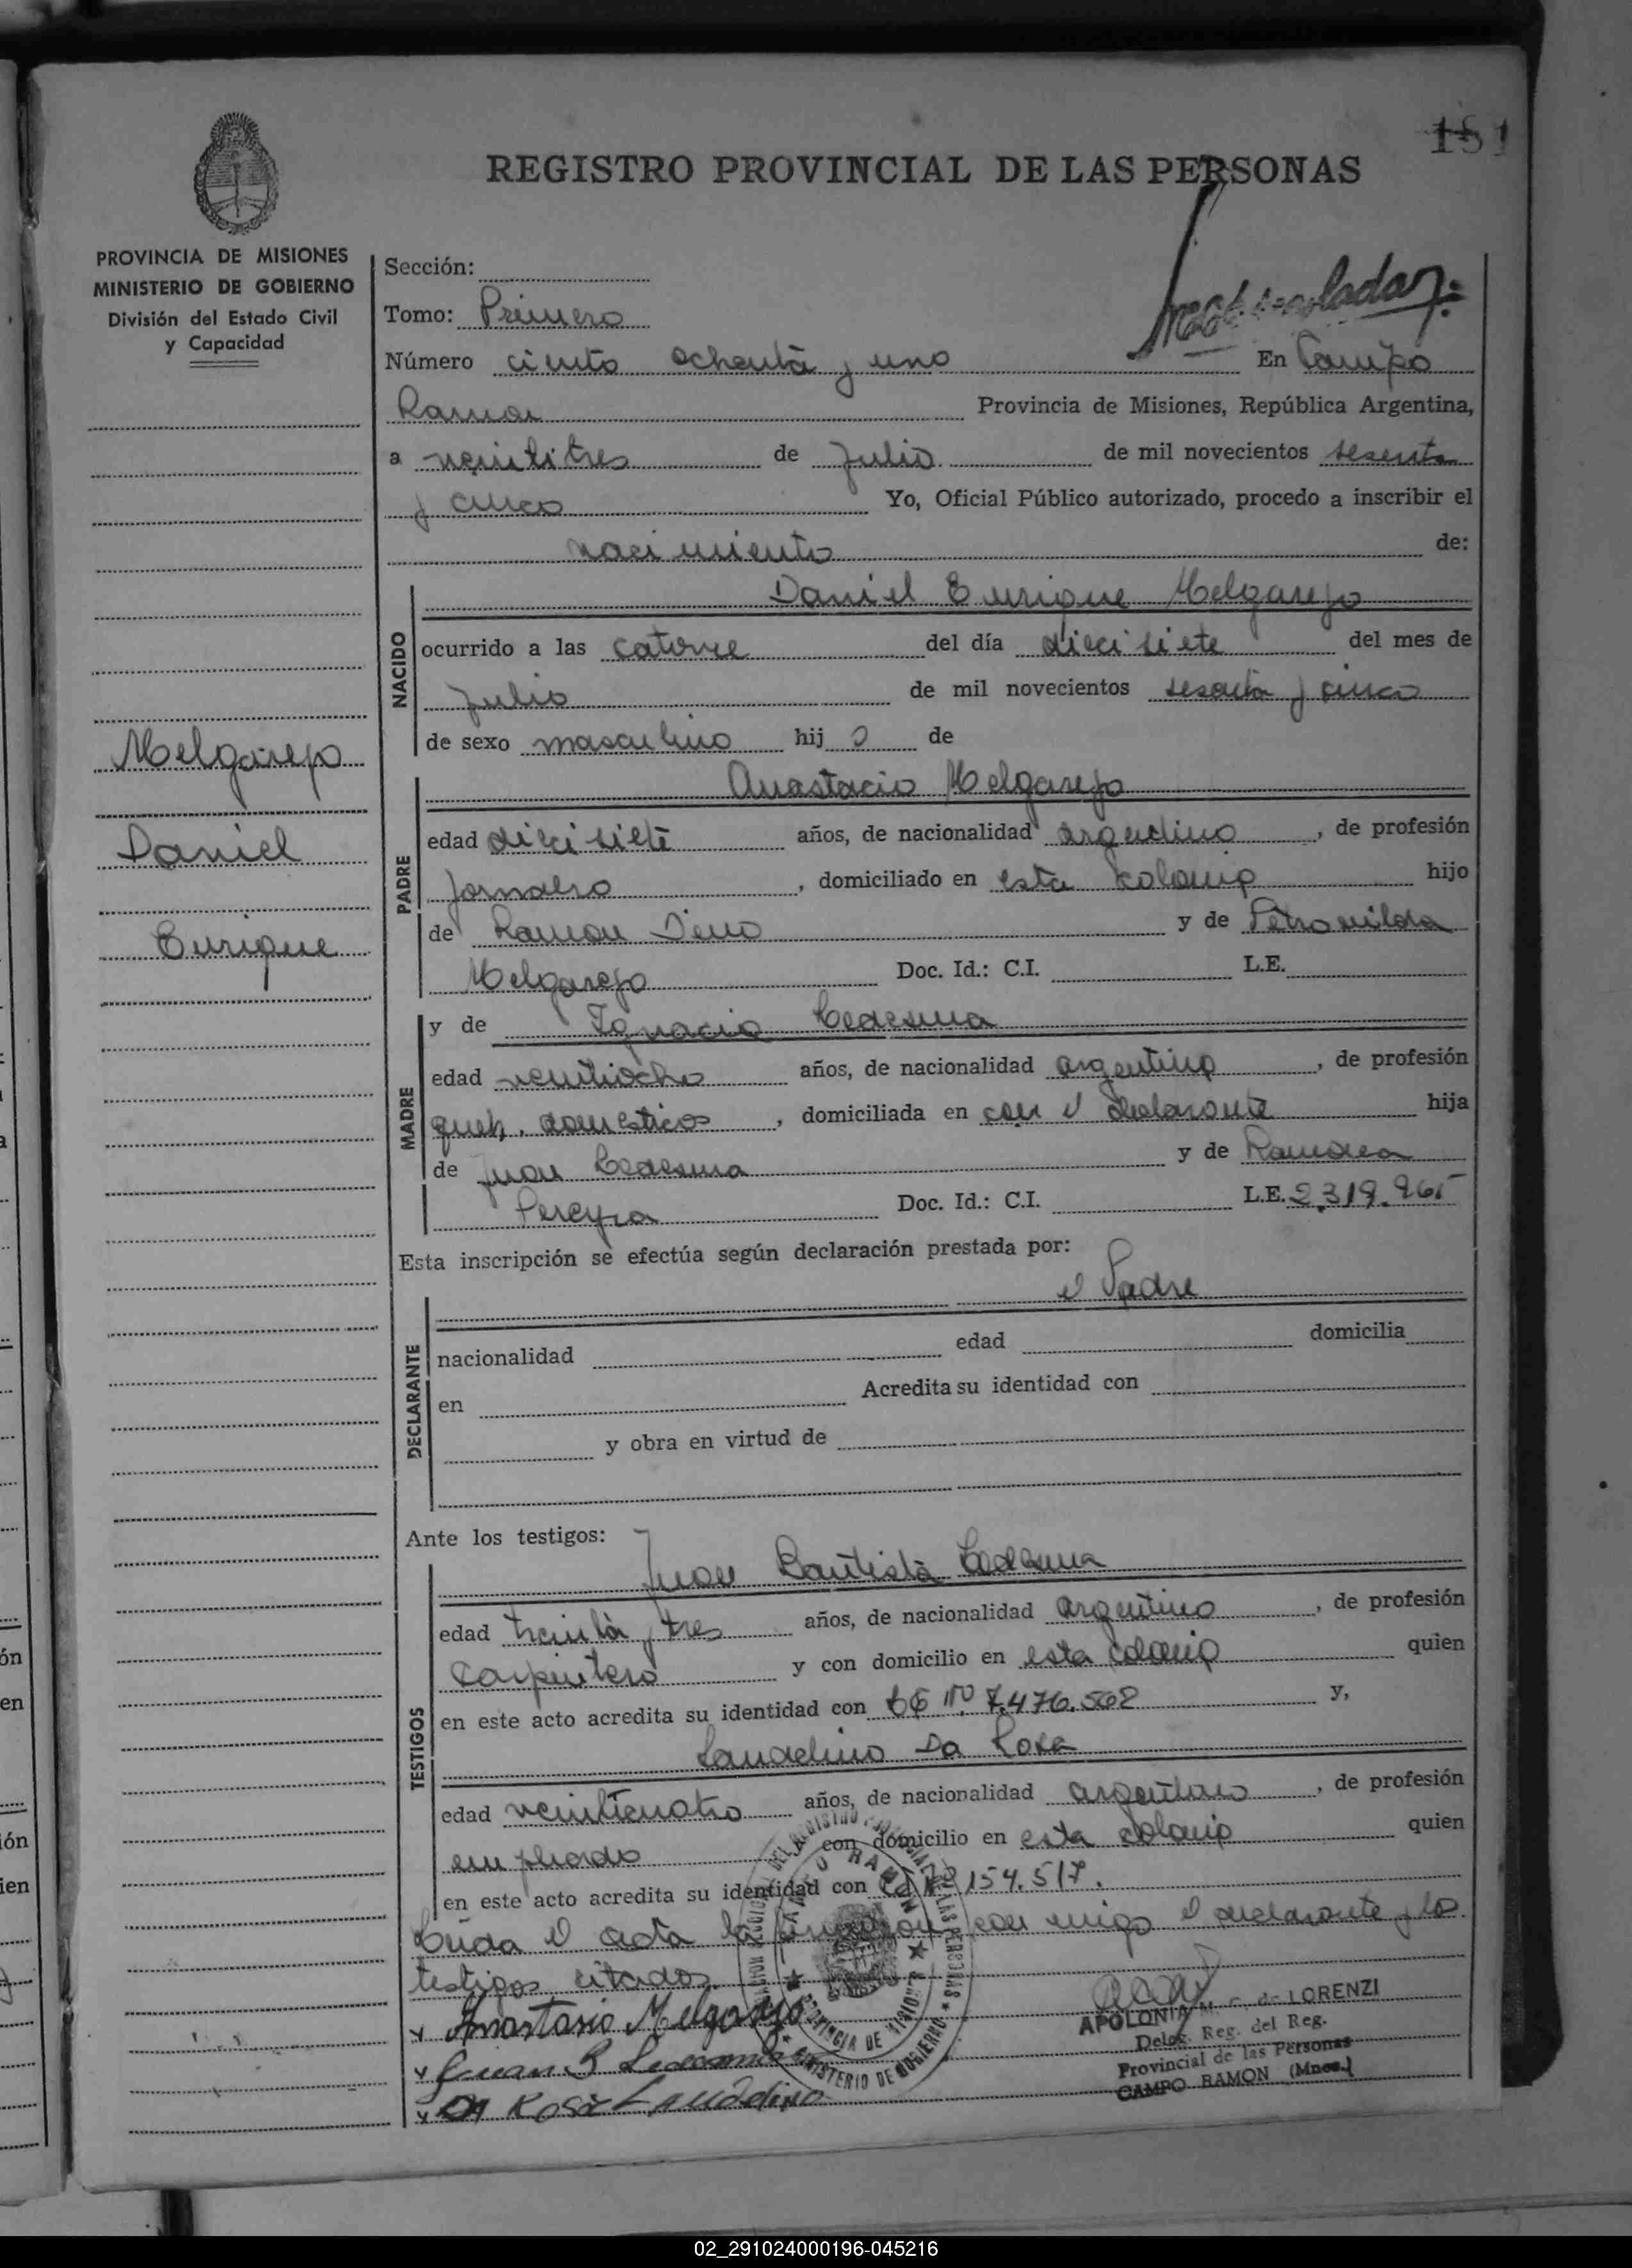 181
REGISTRO PROVINCIAL DE LAS PERSONAS
PROVINCIA DE MISIONES
MINISTERIO DE GOBIERNO
División del Estado Civil
y Capacidad
Melgarejo
Daniel
Enrique
Sección:
Tomo: Primero
Número ciento ochenta y uno En Campo
Ramon Provincia de Misiones, República Argentina,
a veintitres de Julio de mil novecientos sesenta
y cinco Yo, Oficial Público autorizado, procedo a inscribir el
nacimiento de:
NACIDO
Daniel Enrique Melgarejo
ocurrido a las catorce del día diecisiete del mes de
Julio de mil novecientos sesenta y cinco
de sexo masculino hij o de
PADRE
Anastacio Melgarejo
edad diecisiete años, de nacionalidad argentino, de profesión
Jornalero, domiciliado en esta Colonia hijo
de Ramon Dino y de Petronilda
Melgarejo Doc. Id.: C.I. L.E.
MADRE
y de Ignacia Ledesma
edad veintiocho años, de nacionalidad argentina, de profesión
queh. domesticos, domiciliada en con el declarante hija
de Juan Ledesma y de Ramona
Pereyra Doc. Id.: C.I. L.E. 2.319.965
Esta inscripción se efectúa según declaración prestada por:
DECLARANTE
el Padre
nacionalidad edad domicilia
en Acredita su identidad con
y obra en virtud de
Ante los testigos:
TESTIGOS
Juan Bautista Ledesma
edad treinta y tres años, de nacionalidad argentino, de profesión
Carpintero y con domicilio en esta colonia quien
en este acto acredita su identidad con LE Nº 7.476.562 y,
Laudelino Da Rosa
edad veinticuatro años, de nacionalidad argentino, de profesión
empleado con domicilio en esta colonia quien
en este acto acredita su identidad con 154.517.
Leida el acta la firmaron con migo el declarante y los
testigos citados.
Anastasio Melgarejo
Juan B Ledesma
DA ROSA Laudelino
APOLONIA M. C. de LORENZI
Deleg. Reg. del Reg.
Provincial de las Personas
CAMPO RAMON (Mnes.)
CAMPO RAMON
PROVINCIA DE MISIONES
MINISTERIO DE GOBIERNO
02_291024000196-045216